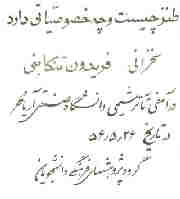 طنز چیست و چه خصوصیاتی دارد
سخنرانی فریدون تنکابنی
در آمفی تآتر شیمی دانشگاه صنعتی آریامهر
در تاریخ ۵۶/۵/۲۶
گروه پژوهشهای فرهنگی دانشجویان